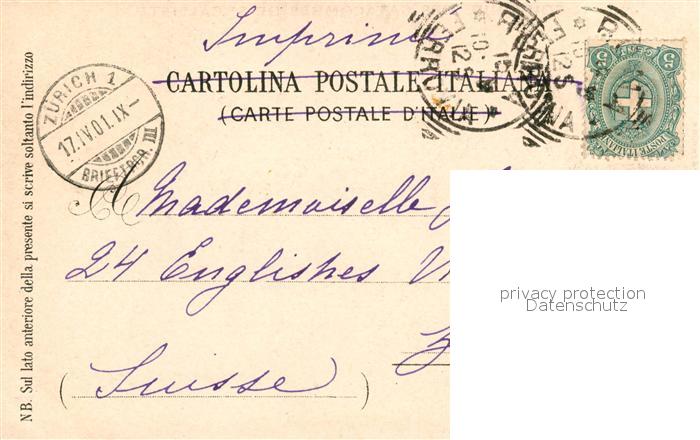 Imprimé
CARTOLINA POSTALE ITALIANA
(CARTE POSTALE D'ITALIE)
ZÜRICH 1
17.IV.01.IX-
BRIEFTRGR. III
POSTE ITALIANE
NB. Sul lato anteriore della presente si scrive soltanto l'indirizzo
Mademoiselle
24 Englishes
(Suisse)
privacy protection
Datenschutz